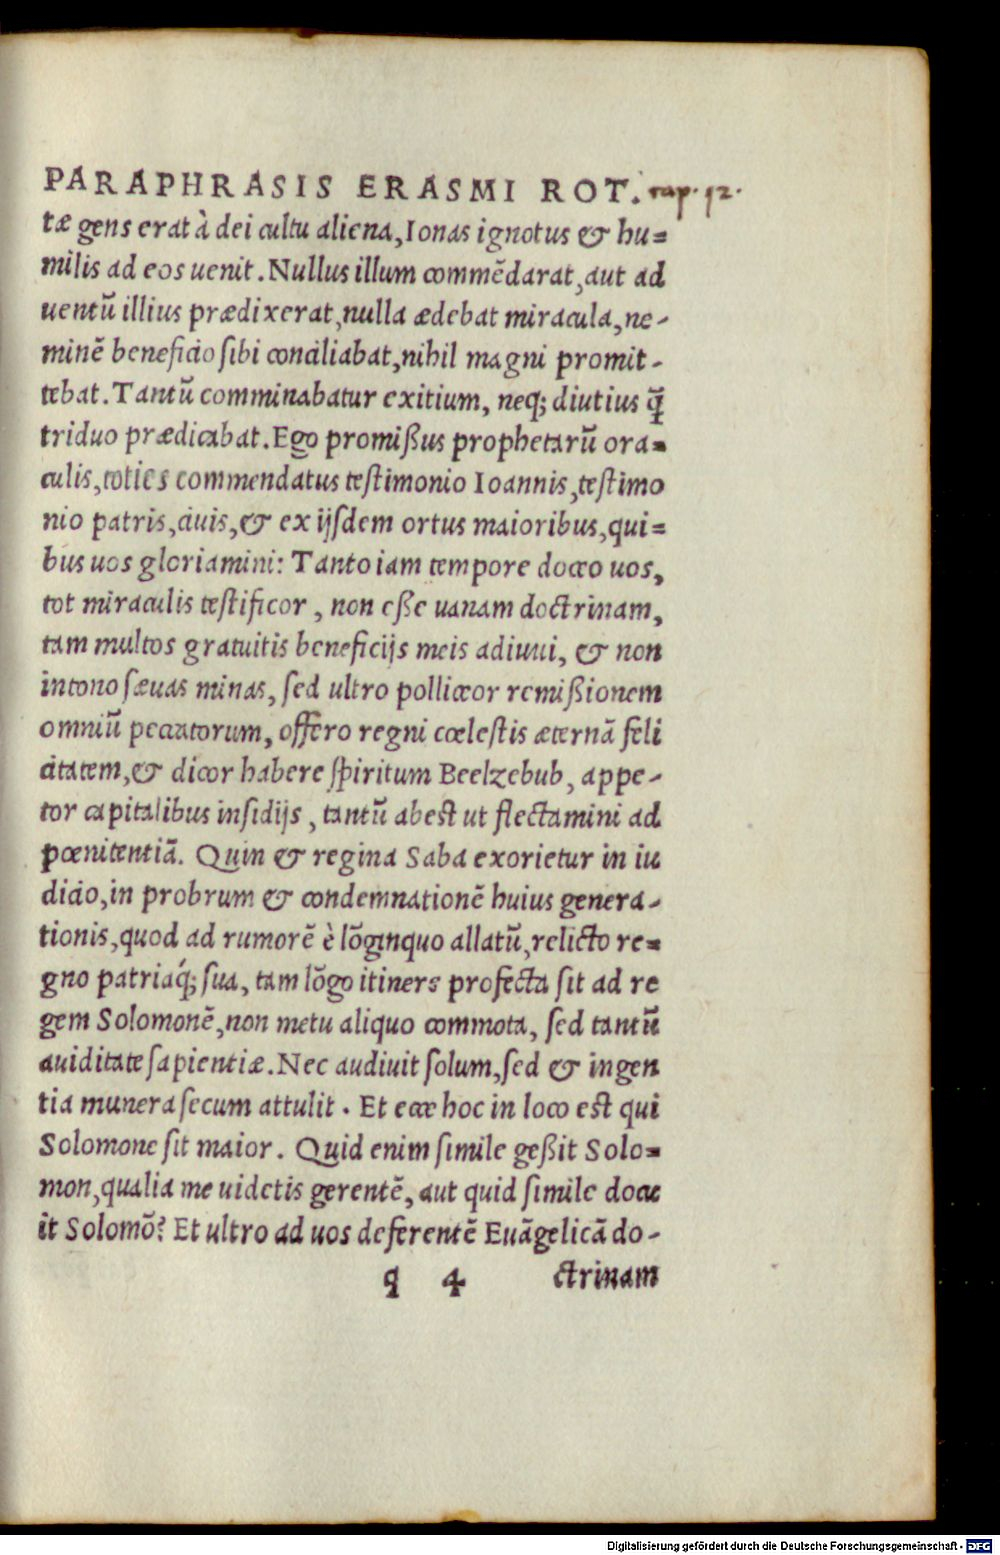 PARAPHRASIS ERASMI ROT. cap. 12.
tæ gens erat à dei cultu aliena, Ionas ignotus & hu=
milis ad eos uenit. Nullus illum commẽdarat, aut ad
uentũ illius prædixerat, nulla ædebat miracula, ne-
minẽ beneficio ſibi conciliabat, nihil magni promit-
tebat. Tantũ comminabatur exitium, neq; diutius q̃
triduo prædicabat. Ego promißus prophetarũ ora=
culis, toties commendatus teſtimonio Ioannis, teſtimo
nio patris, ciuis, & ex ijſdem ortus maioribus, qui=
bus uos gloriamini: Tanto iam tempore doceo uos,
tot miraculis teſtificor, non eße uanam doctrinam,
tam multos gratuitis beneficijs meis adiuui, & non
intono ſæuas minas, ſed ultro polliceor remißionem
omniũ peccatorum, offero regni cœleſtis æternã feli
citatem, & dicor habere ſpiritum Beelzebub, appe-
tor capitalibus inſidijs, tantũ abeſt ut flectamini ad
pœnitentiã. Quin & regina Saba exorietur in iu
dicio, in probrum & condemnationẽ huius genera-
tionis, quod ad rumorẽ è lõginquo allatũ, relicto re=
gno patriáq; ſua, tam lõgo itinere profecta ſit ad re
gem Solomonẽ, non metu aliquo commota, ſed tantũ
auiditate ſapientiæ. Nec audiuit ſolum, ſed & ingen
tia munera ſecum attulit. Et ecce hoc in loco eſt qui
Solomone ſit maior. Quid enim ſimile geßit Solo=
mon, qualia me uidetis gerentẽ, aut quid ſimile docu
it Solomõ? Et ultro ad uos deferentẽ Euãgelicã do-
q 4 ctrinam
Digitalisierung gefördert durch die Deutsche Forschungsgemeinschaft - DFG